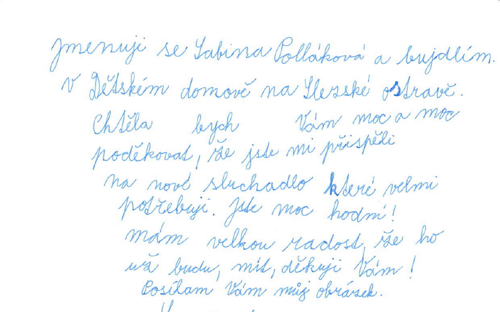 jmenuji se Sabina Polláková a bujdlím.
v Dětském domově na Slezské ostravě.
Chtěla bych Vám moc a moc
poděkovat, že jste mi přispěli
na nové sluchadlo které velmi
potřebuji. Jste moc hodní!
mám velkou radost, že ho
už budu, mít, děkuji Vám!
Posílam Vám můj obrázek.